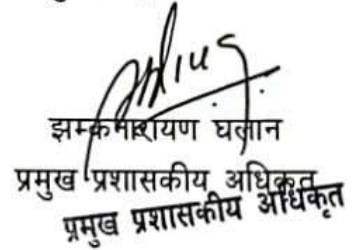 झम्कनारायण घलान
प्रमुख प्रशासकीय अधिकृत
प्रमुख प्रशासकीय अधिकृत